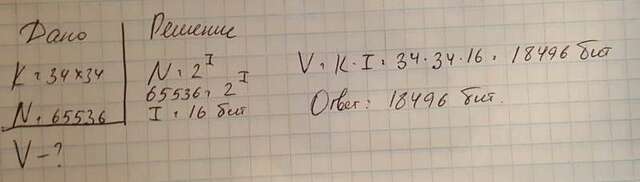 Дано
K = 34×34
N = 65536
V - ?
Решение
N = 2^I
65536 = 2^I
I = 16 бит
V = K · I = 34 · 34 · 16 = 18496 бит
Ответ: 18496 бит.